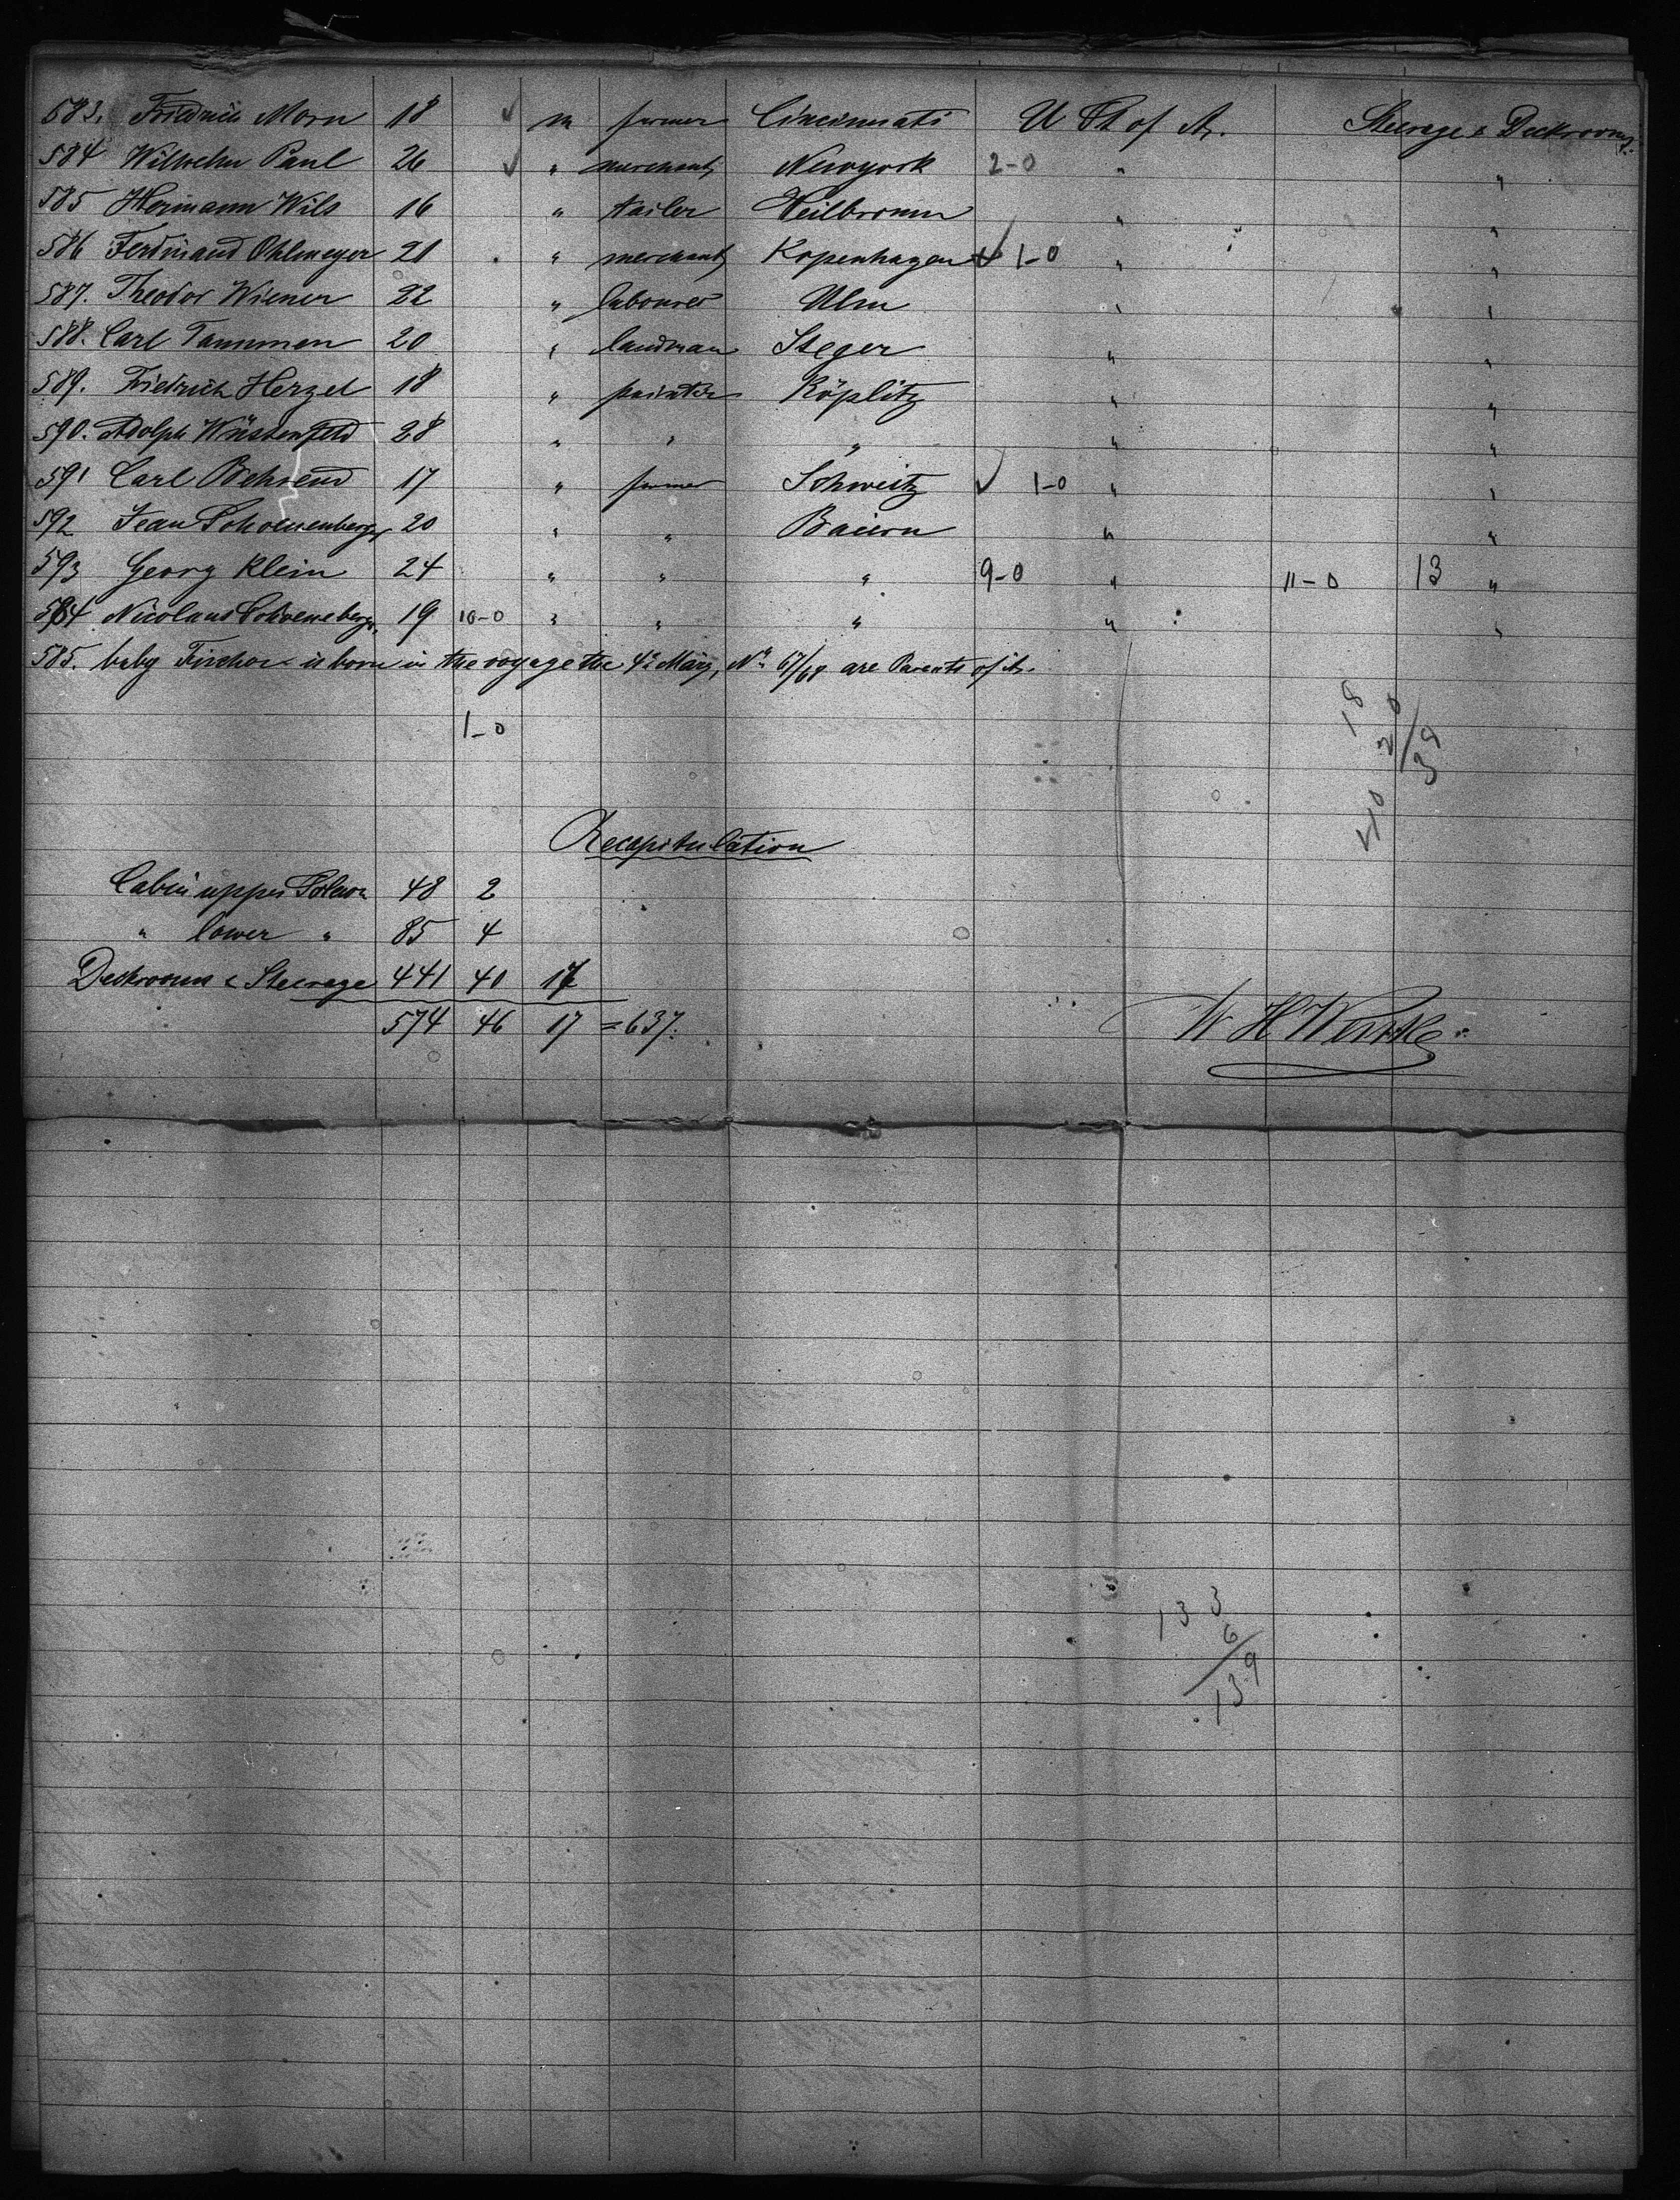 583. Friedrich Morn 18 m farmer Cincinnati U St of A. Steerage & Deckrooms.
584 Wilhelm Paul 26 " merchant Newyork 2-0 " "
585 Hermann Wils 16 " tailer Heilbronn " "
586 Ferdinand Ohlmeyer 21 " merchant Kopenhagen 1-0 " "
587. Theodor Wiener 22 " labourer Ulm " "
588. Carl Tammen 20 " landman Steger " "
589. Friedrich Herzel 18 " painter Köplitz " "
590. Adolph Wüstenfeld 28 " " " " "
591 Carl Behrend 17 " farmer Schweitz 1-0 " "
592 Jean 20 " " Baiern " "
593 Georg Klein 24 " " " 9-0 " 11-0 13 "
594 Nicolaus 19 10-0 " " " " "
585. baby is born in the voyage the 4th März, No 67/68 are Parents of it.
1-0
18
20
39
40
Recapitulation
Cabin upper Saloon 48 2
" lower " 85 4
Deckrooms & Steerage 441 40 17
574 46 17 = 637.
W H
133
6
139